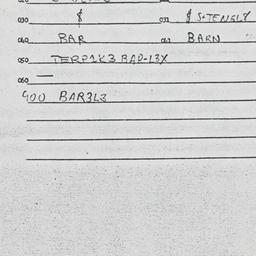 030 $ 031 $ S-TENSLY
040 BAR 041 BARN
050 TERP1K3 BAD-13X
060 —
400 BAR3L3